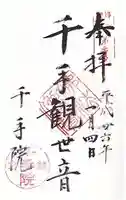 奉拝
平成廿六年
一月四日
千手観世音
千手院